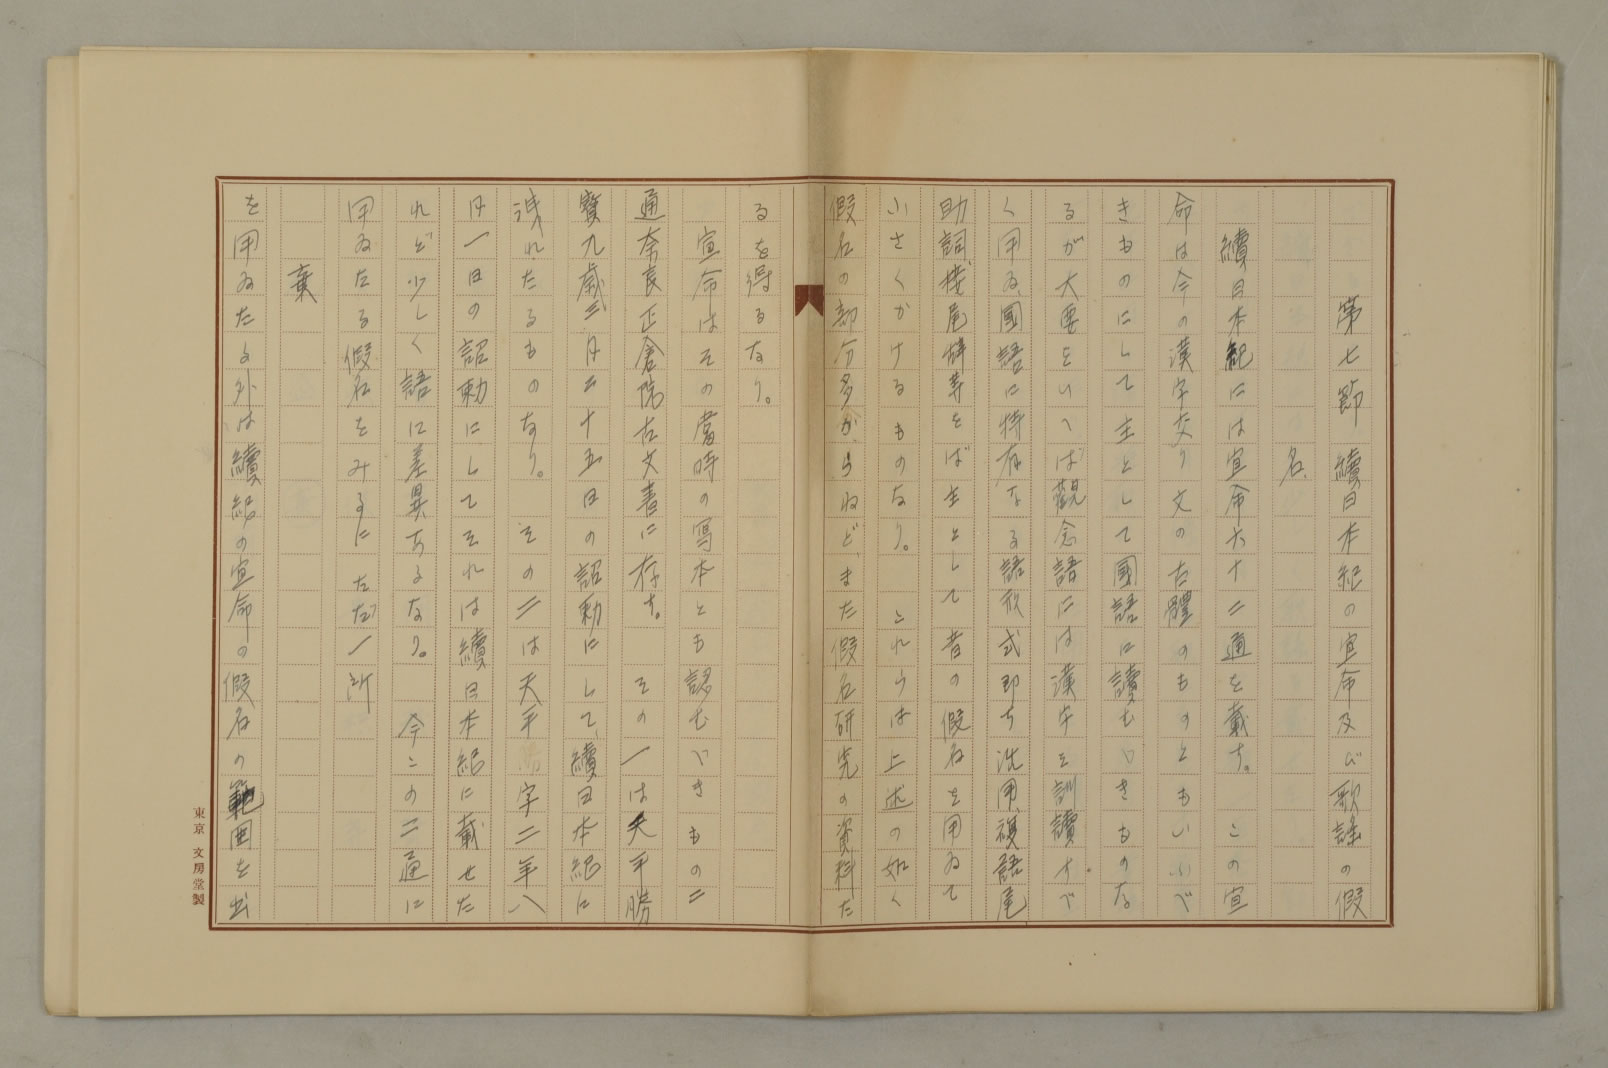 第七節　續日本紀の宣命及び歌謠の假
名
續日本紀には宣命六十二通を載す。この宣
命は今の漢字交り文の古體のものともいふべ
きものにして主として國語に讀むべきものな
るが大要をいへば觀念語には漢字を訓讀すべ
く用ゐ、國語に特有なる語形式即ち活用、複語尾
助詞、接尾辭等をば主として音の假名を用ゐて
小さくかけるものなり。これらは上述の如く
假名の部分多からねど、また假名研究の資料た
るを得るなり。
宣命はその當時の寫本とも認むべきもの二
通奈良正倉院古文書に存す。その一は天平勝
寶九歳三月二十五日の詔勅にして、續日本紀に
洩れたるものなり。その二は天平字二年八
月一日の詔勅にしてそれは續日本紀に載せた
れど少しく語に差異あるなり。今この二通に
用ゐたる假名をみるにただ一所
棄
を用ゐたる外は續紀の宣命の假名の範囲を出
東京 文房堂製